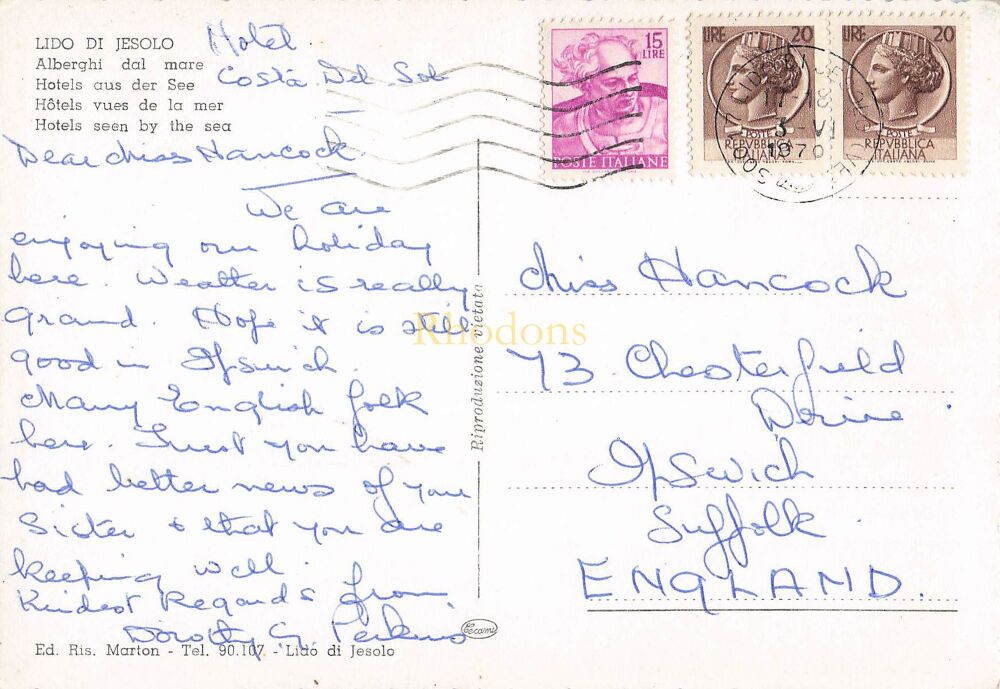 LIDO DI JESOLO
Alberghi dal mare
Hotels aus der See
Hôtels vues de la mer
Hotels seen by the sea
Hotel
Costa Del Sol
Dear Miss Hancock
We are
enjoying our holiday
here. Weather is really
grand. Hope it is still
good in Ipswich.
Many English folk
here. Trust you have
had better news of your
sister & that you are
keeping well.
Kindest Regards from
Dorothy G. Perkins
Ed. Ris. Marton - Tel. 90.107 - Lido di Jesolo
Riproduzione vietata
Tecami
Rhodons
15
LIRE
POSTE ITALIANE
LIRE 20
POSTE
REPVBBLICA
ITALIANA
LIRE 20
POSTE
REPVBBLICA
ITALIANA
17-18
3-VI
1970
Miss Hancock
73 Chesterfield
Drive.
Ipswich
Suffolk.
ENGLAND.